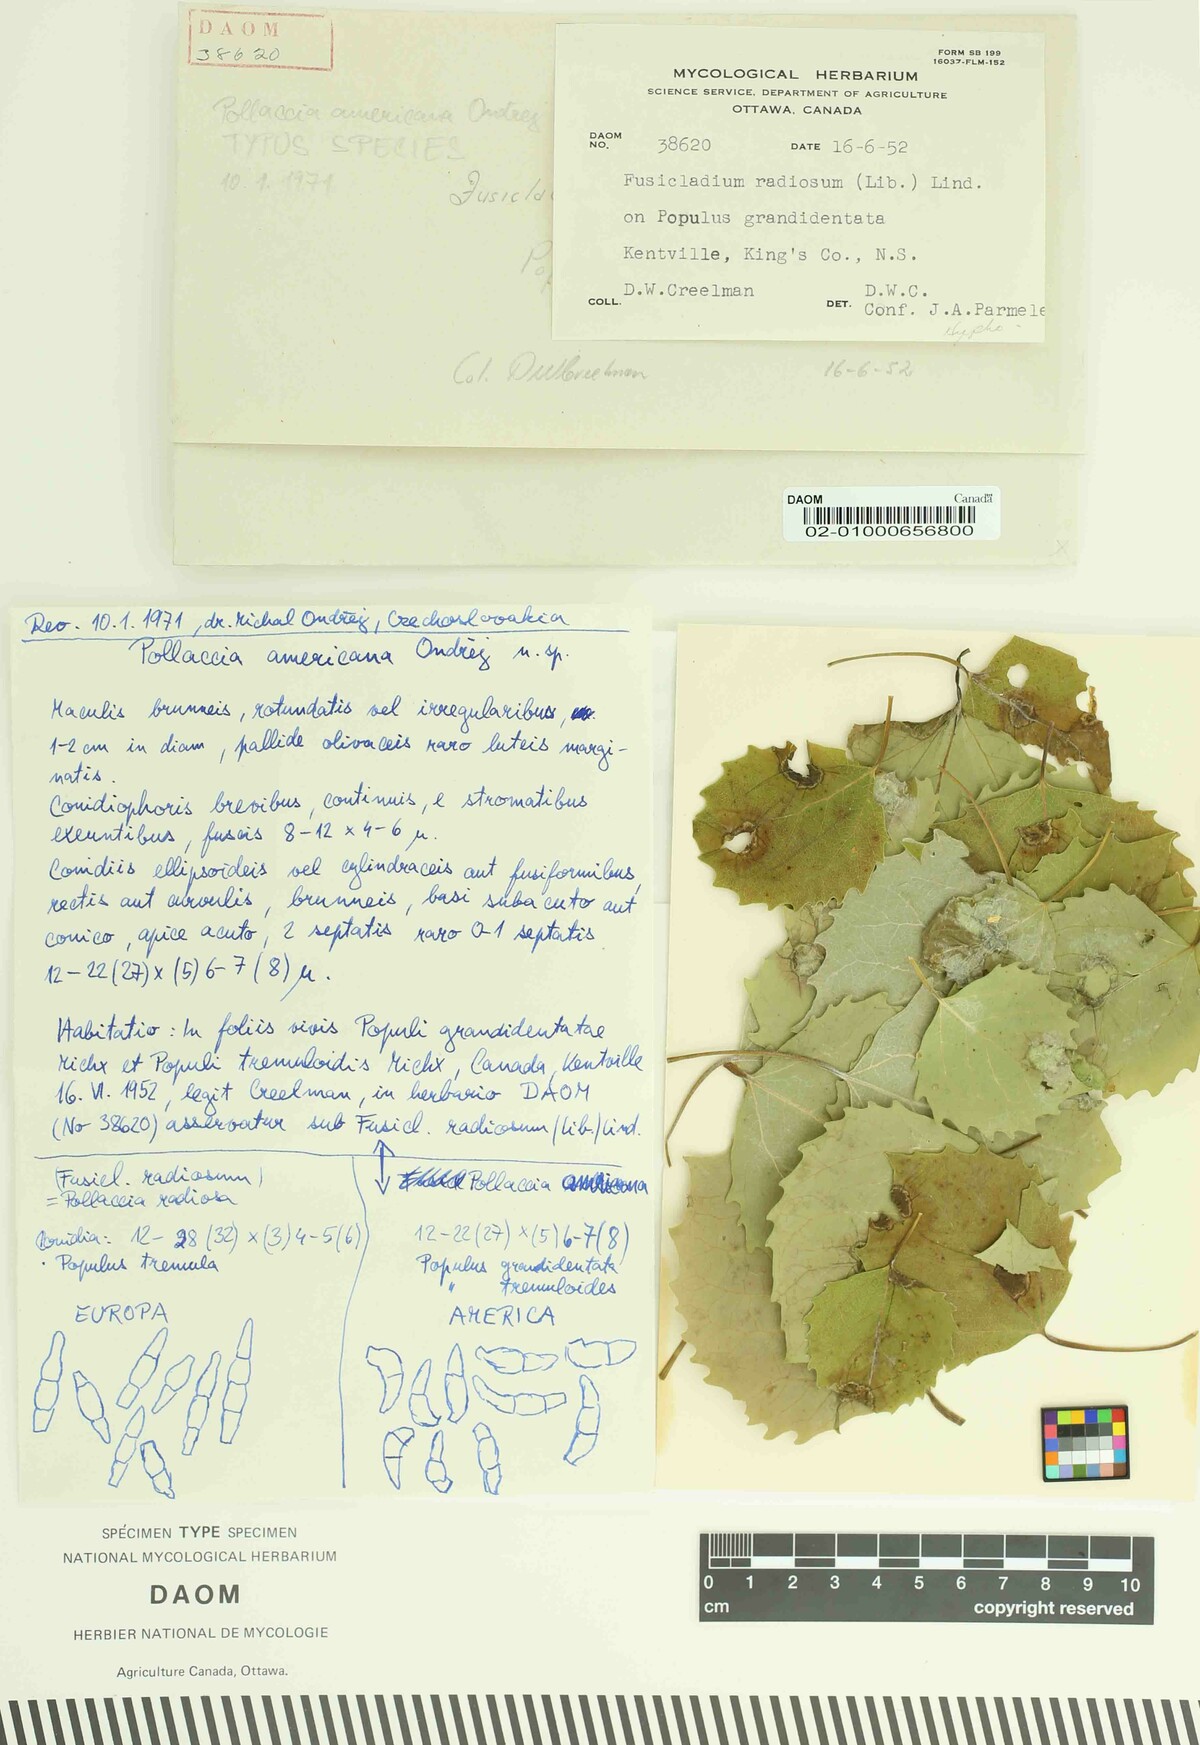 DAOM
38620
Pollaccia americana Ondřej
TYPUS SPECIES
10.1.1971
Col. D.W.Creelman 16-6-52
FORM SB 199
16037-FLM-152
MYCOLOGICAL HERBARIUM
SCIENCE SERVICE, DEPARTMENT OF AGRICULTURE
OTTAWA, CANADA
DAOM NO. 38620 DATE 16-6-52
Fusicladium radiosum (Lib.) Lind.
on Populus grandidentata
Kentville, King's Co., N.S.
COLL. D.W.Creelman DET. D.W.C.
Conf. J.A.Parmele
DAOM Canada
02-01000656800
Rev. 10.1.1971, dr. Michal Ondřej, Czechoslovakia
Pollaccia americana Ondřej n. sp.
Maculis brunneis, rotundatis vel irregularibus,
1-2 cm in diam, pallide olivaceis raro luteis margi-
natis.
Conidiophoris brevibus, continuis, e stromatibus
exeuntibus, fuscis 8-12 × 4-6 µ.
Conidiis ellipsoideis vel cylindraceis aut fusiformibus,
rectis aut curvulis, brunneis, basi subacuto aut
conico, apice acuto, 2 septatis raro 0-1 septatis
12-22(27)×(5)6-7(8) µ.
Habitatio: In foliis vivis Populi grandidentatae
Michx et Populi tremuloidis Michx, Canada, Kentville
16. VI. 1952, legit Creelman, in herbario DAOM
(No 38620) asservatur sub Fusicl. radiosum /Lib./ Lind.
(Fusicl. radiosum)
= Pollaccia radiosa
Conidia: 12-28(32)×(3)4-5(6)
Populus tremula
EUROPA
Pollaccia americana
12-22(27)×(5)6-7(8)
Populus grandidentata
" tremuloides
AMERICA
SPÉCIMEN TYPE SPECIMEN
NATIONAL MYCOLOGICAL HERBARIUM
DAOM
HERBIER NATIONAL DE MYCOLOGIE
Agriculture Canada, Ottawa.
0 1 2 3 4 5 6 7 8 9 10
cm copyright reserved